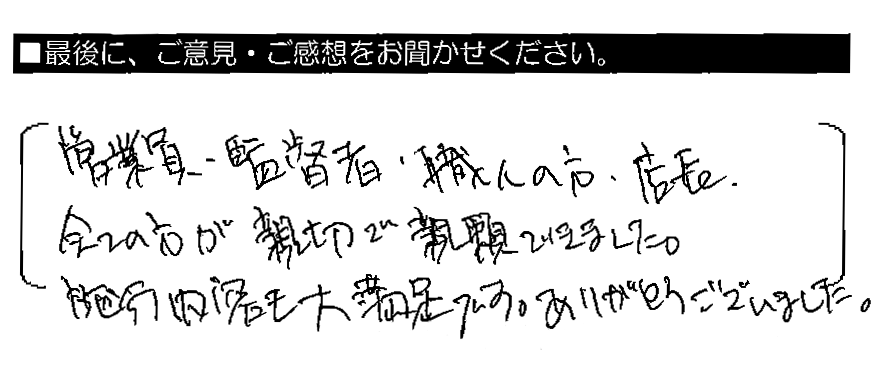 ■最後に、ご意見・ご感想をお聞かせください。
営業員・監督者・職人の方・店長、
全ての方が親切で親頼できました。
施行内容も大満足です。ありがとうございました。